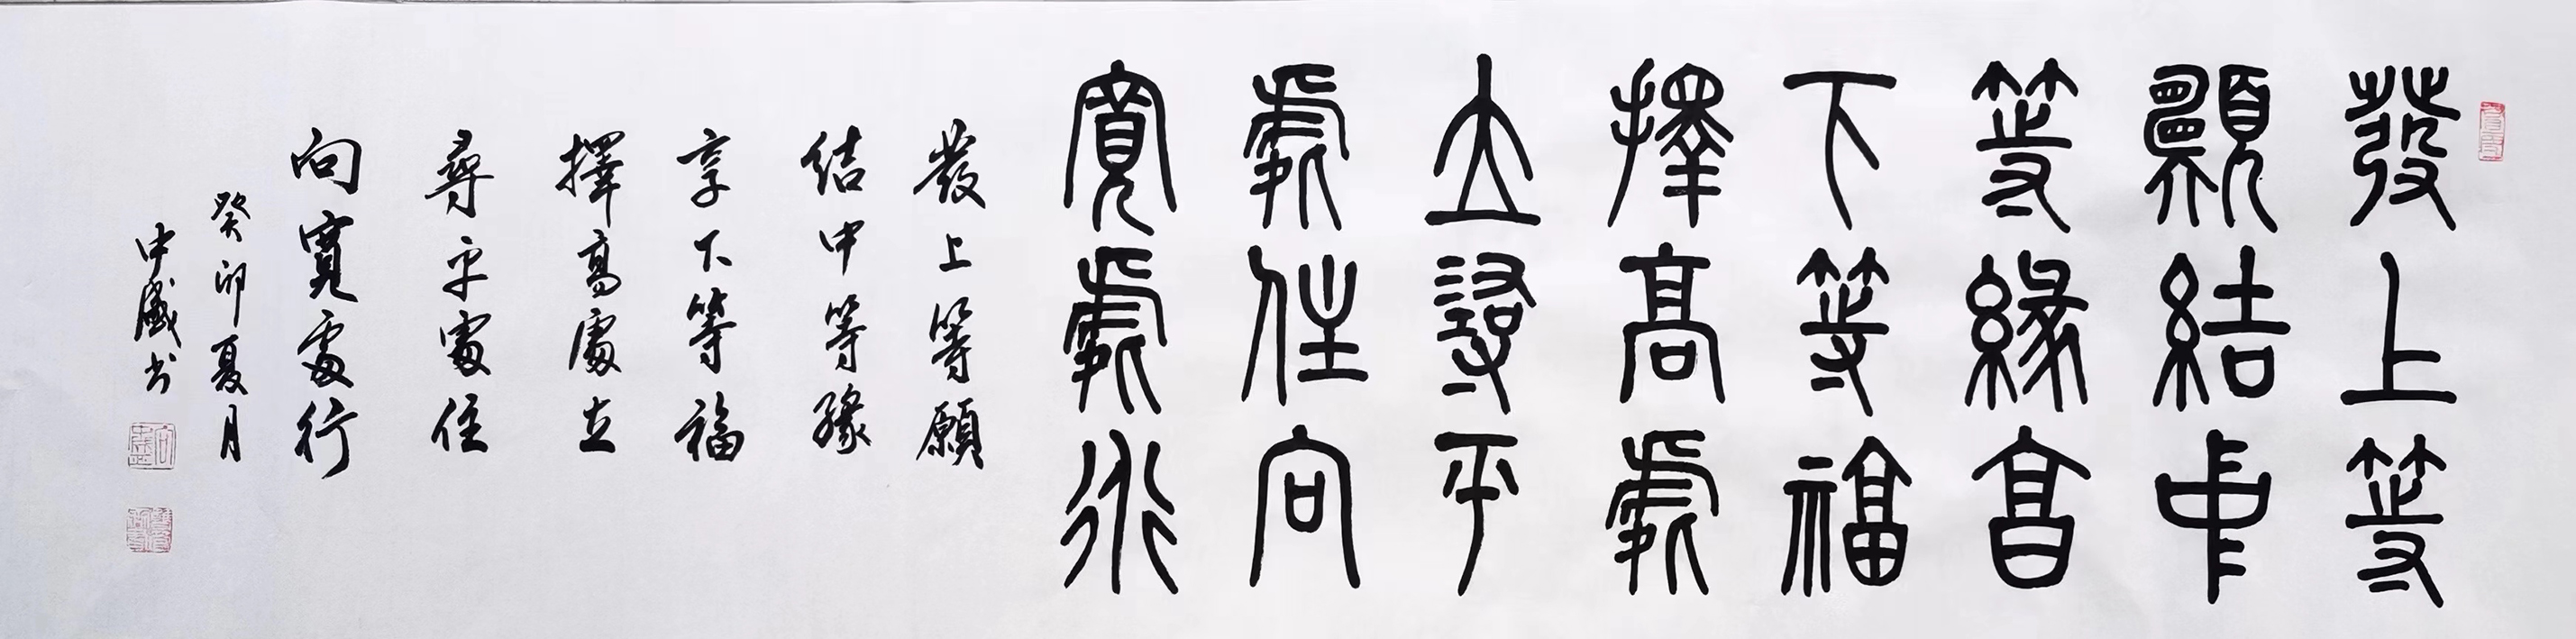 發上等
願結中
等緣享
下等福
擇高處
立尋平
處住向
寬處行
發上等願
結中等緣
享下等福
擇高處立
尋平處住
向寬處行
癸卯夏月
中盛书